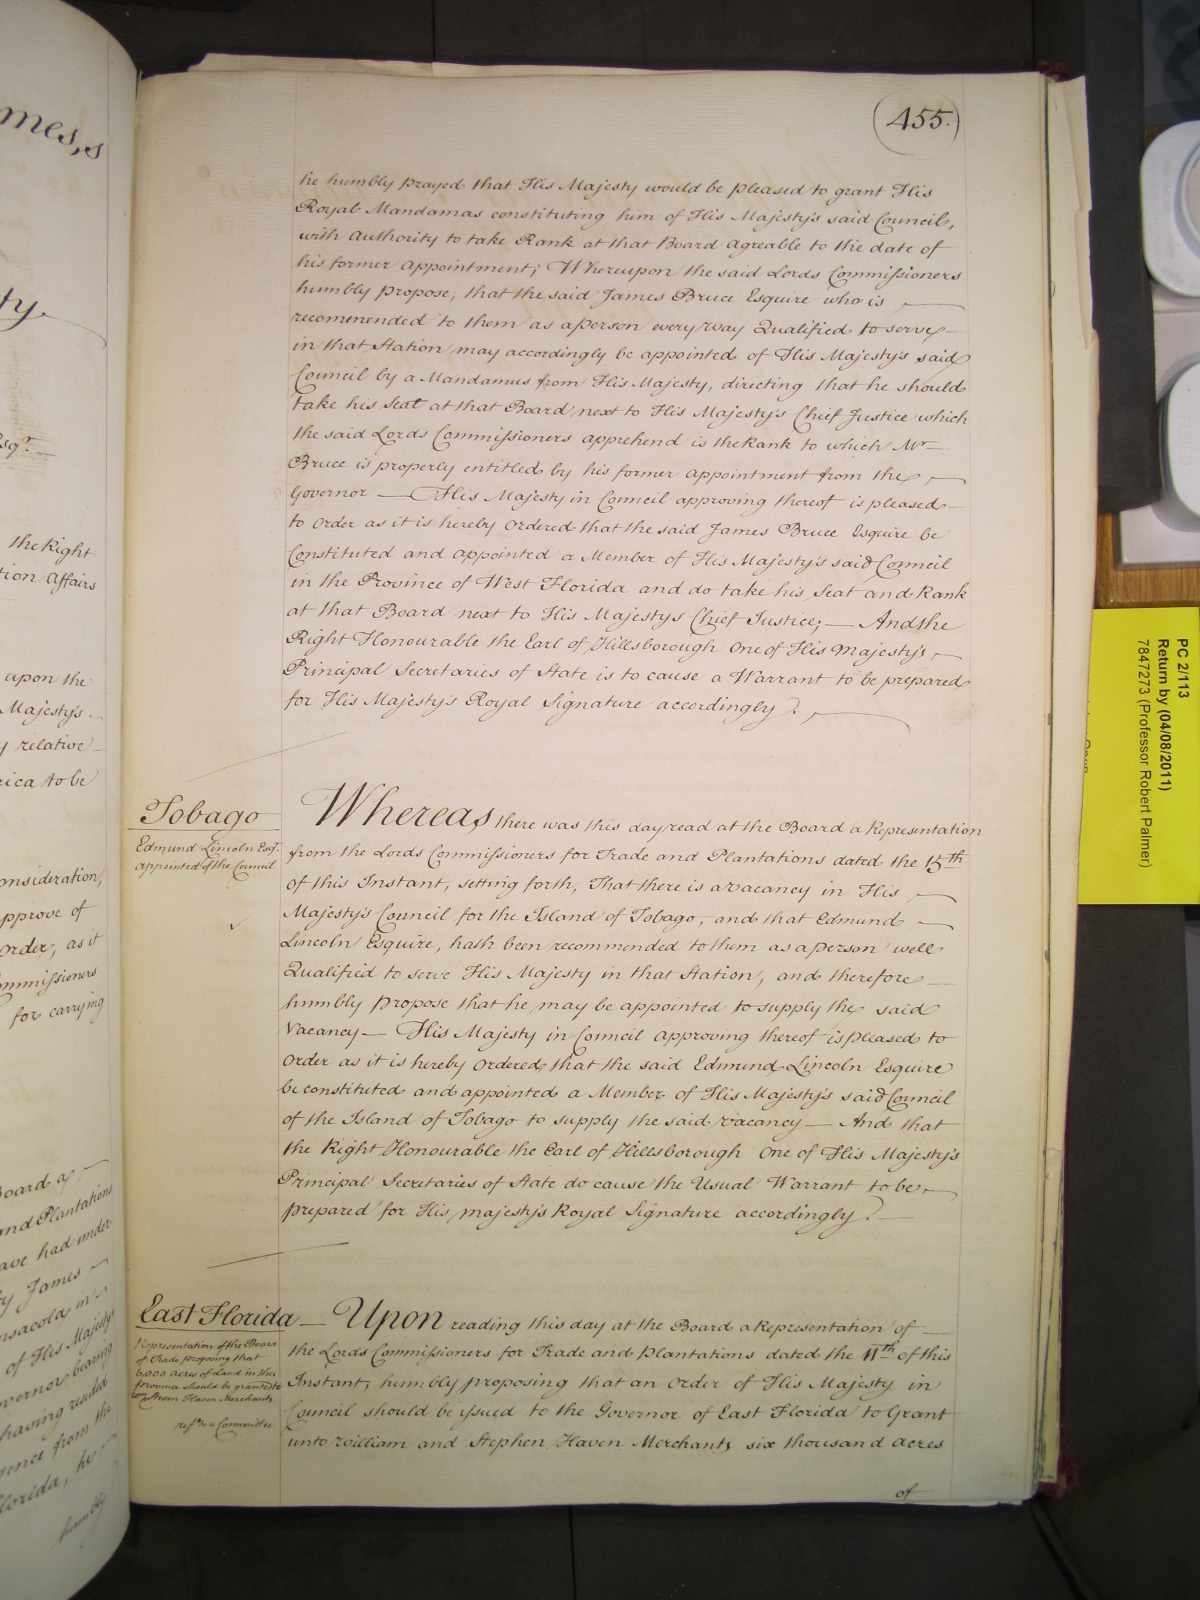 455.
he humbly prayed that His Majesty would be pleased to grant His
Royal Mandamas constituting him of His Majesty's said Council,
with Authority to take Rank at that Board agreable to the date of
his former appointment; Whereupon the said Lords Commissioners
humbly propose, that the said James Bruce Esquire who is
recommended to them as a person every way Qualified to serve
in that Station may accordingly be appointed of His Majesty's said
Council by a Mandamus from His Majesty, directing that he should
take his Seat at that Board next to His Majesty's Chief Justice which
the said Lords Commissioners apprehend is the Rank to which Mr
Bruce is properly entitled by his former appointment from the
Governor — His Majesty in Council approving thereof is pleased
to order as it is hereby ordered that the said James Bruce Esquire be
Constituted and appointed a Member of His Majesty's said Council
in the Province of West Florida and do take his Seat and Rank
at that Board next to His Majestys Chief Justice; — And the
Right Honourable the Earl of Hillsborough One of His Majesty's
Principal Secretaries of State is to cause a Warrant to be prepared
for His Majesty's Royal Signature accordingly.
Tobago
Edmund Lincoln Esqr.
appointed of the Council
Whereas there was this day read at the Board a Representation
from the Lords Commissioners for Trade and Plantations dated the 15th
of this Instant, setting forth, That there is a vacancy in His
Majesty's Council for the Island of Tobago, and that Edmund
Lincoln Esquire, hath been recommended to them as a person well
Qualified to serve His Majesty in that Station, and therefore
humbly propose that he may be appointed to supply the said
Vacancy — His Majesty in Council approving thereof is pleased to
order as it is hereby ordered that the said Edmund Lincoln Esquire
be constituted and appointed a Member of His Majesty's said Council
of the Island of Tobago to supply the said vacancy — And that
the Right Honourable the Earl of Hillsborough One of His Majesty's
Principal Secretaries of State do cause the Usual Warrant to be
prepared for His Majesty's Royal Signature accordingly.
East Florida
Representation of the Board
of Trade proposing that
6,000 acres of Land in this
Province should be granted to
Haven Merchants
refd. to a Committee
Upon reading this day at the Board a Representation of
the Lords Commissioners for Trade and Plantations dated the 11th of this
Instant, humbly proposing that an Order of His Majesty in
Council should be issued to the Governor of East Florida to Grant
unto William and Stephen Haven Merchants six thousand acres
of
mes,s
ty.
Esqr.
the Right
tion Affairs
upon the
Majesty's
relative
rica to be
onsideration,
pprove of
order, as it
ommissioners
for carrying
Board a
and Plantations
ave had under
by James
nsacola in
of His Majesty's
vernor bearing
having resided
ence from the
lorida, he
humbly
PC 2/113
Return by (04/08/2011)
7847273 (Professor Robert Palmer)